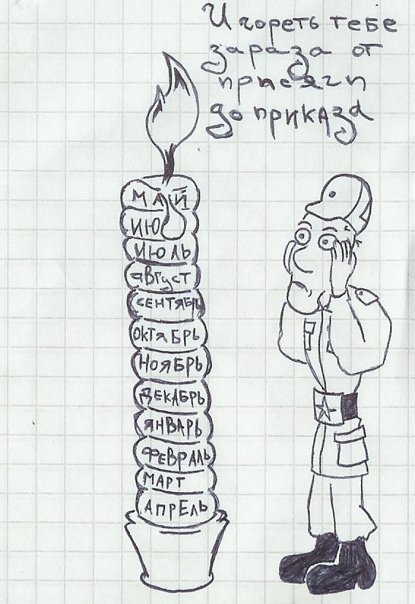 И гореть тебе
зараза от
присяги
до приказа
МАЙ
ИЮ
ИЮЛЬ
август
СЕНТЯБРЬ
ОКТЯБРЬ
НОЯБРЬ
ДЕКАБРЬ
ЯНВАРЬ
ФЕВРАЛЬ
МАРТ
АПРЕЛЬ